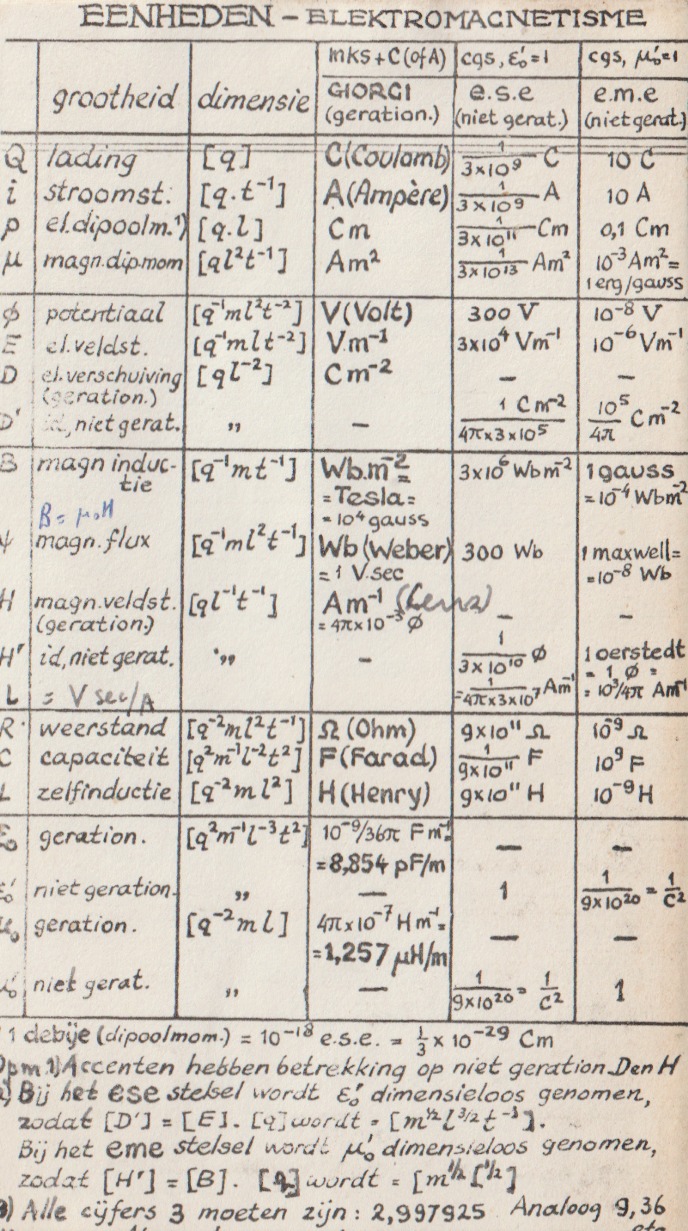 EENHEDEN - ELEKTROMAGNETISME
grootheid dimensie mks+C(of A) GIORGI (geration.) cgs, ε₀'=1 e.s.e (niet gerat.) cgs, μ₀'=1 e.m.e (niet gerat.)
Q lading [q] C(Coulomb) 1/3×10⁹ C 10 C
i stroomst. [q·t⁻¹] A(Ampère) 1/3×10⁹ A 10 A
p el.dipoolm.¹) [q.l] Cm 1/3×10¹¹ Cm 0,1 Cm
μ magn.dip.mom [ql²t⁻¹] Am² 1/3×10¹³ Am² 10⁻³Am²= 1erg/gauss
ϕ potentiaal [q⁻¹ml²t⁻²] V(Volt) 300 V 10⁻⁸ V
E el.veldst. [q⁻¹mlt⁻²] Vm⁻¹ 3×10⁴ Vm⁻¹ 10⁻⁶ Vm⁻¹
D el.verschuiving (geration.) [ql⁻²] Cm⁻² — —
D' id, niet gerat. „ — 1 Cm⁻²/4π×3×10⁵ 10⁵/4π Cm⁻²
B magn induc- tie [q⁻¹mt⁻¹] Wb.m⁻²= =Tesla= =10⁴gauss 3×10⁶ Wbm⁻² 1gauss =10⁻⁴ Wbm⁻²
B = μ₀H
ψ magn.flux [q⁻¹ml²t⁻¹] Wb(Weber) =1 V.sec 300 Wb 1maxwell= =10⁻⁸ Wb
H magn.veldst. (geration.) [ql⁻¹t⁻¹] Am⁻¹ =4π×10⁻³ Ø — —
H' id, niet gerat. „ — 1/3×10¹⁰ Ø =1/4π×3×10⁷ Am⁻¹ 1oerstedt = 1 Ø = = 10³/4π Am⁻¹
L = V sec/A
R weerstand [q⁻²ml²t⁻¹] Ω(Ohm) 9×10¹¹ Ω 10⁻⁹ Ω
C capaciteit [q²m⁻¹l⁻²t²] F(Farad) 1/9×10¹¹ F 10⁹ F
L zelfinductie [q⁻²ml²] H(Henry) 9×10¹¹ H 10⁻⁹ H
ε₀ geration. [q²m⁻¹l⁻³t²] 10⁻⁹/36π Fm⁻¹ =8,854 pF/m — —
ε₀' niet geration. „ — 1 1/9×10²⁰ = 1/C²
μ₀ geration. [q⁻²ml] 4π×10⁻⁷Hm⁻¹= =1,257 μH/m — —
μ₀' niet gerat. „ — 1/9×10²⁰ = 1/C² 1
1 debije (dipoolmom.) = 10⁻¹⁸ e.s.e. = 1/3 × 10⁻²⁹ Cm
Opm 1) Accenten hebben betrekking op niet geration. D en H
2) Bij het ese stelsel wordt ε₀' dimensieloos genomen,
zodat [D'] = [E]. [q] wordt = [m^½ l^3/2 t⁻¹].
Bij het eme stelsel wordt μ₀' dimensieloos genomen,
zodat [H'] = [B]. [q] wordt = [m^½ l^½]
3) Alle cijfers 3 moeten zijn: 2,997925 Analoog 9,36
etc.